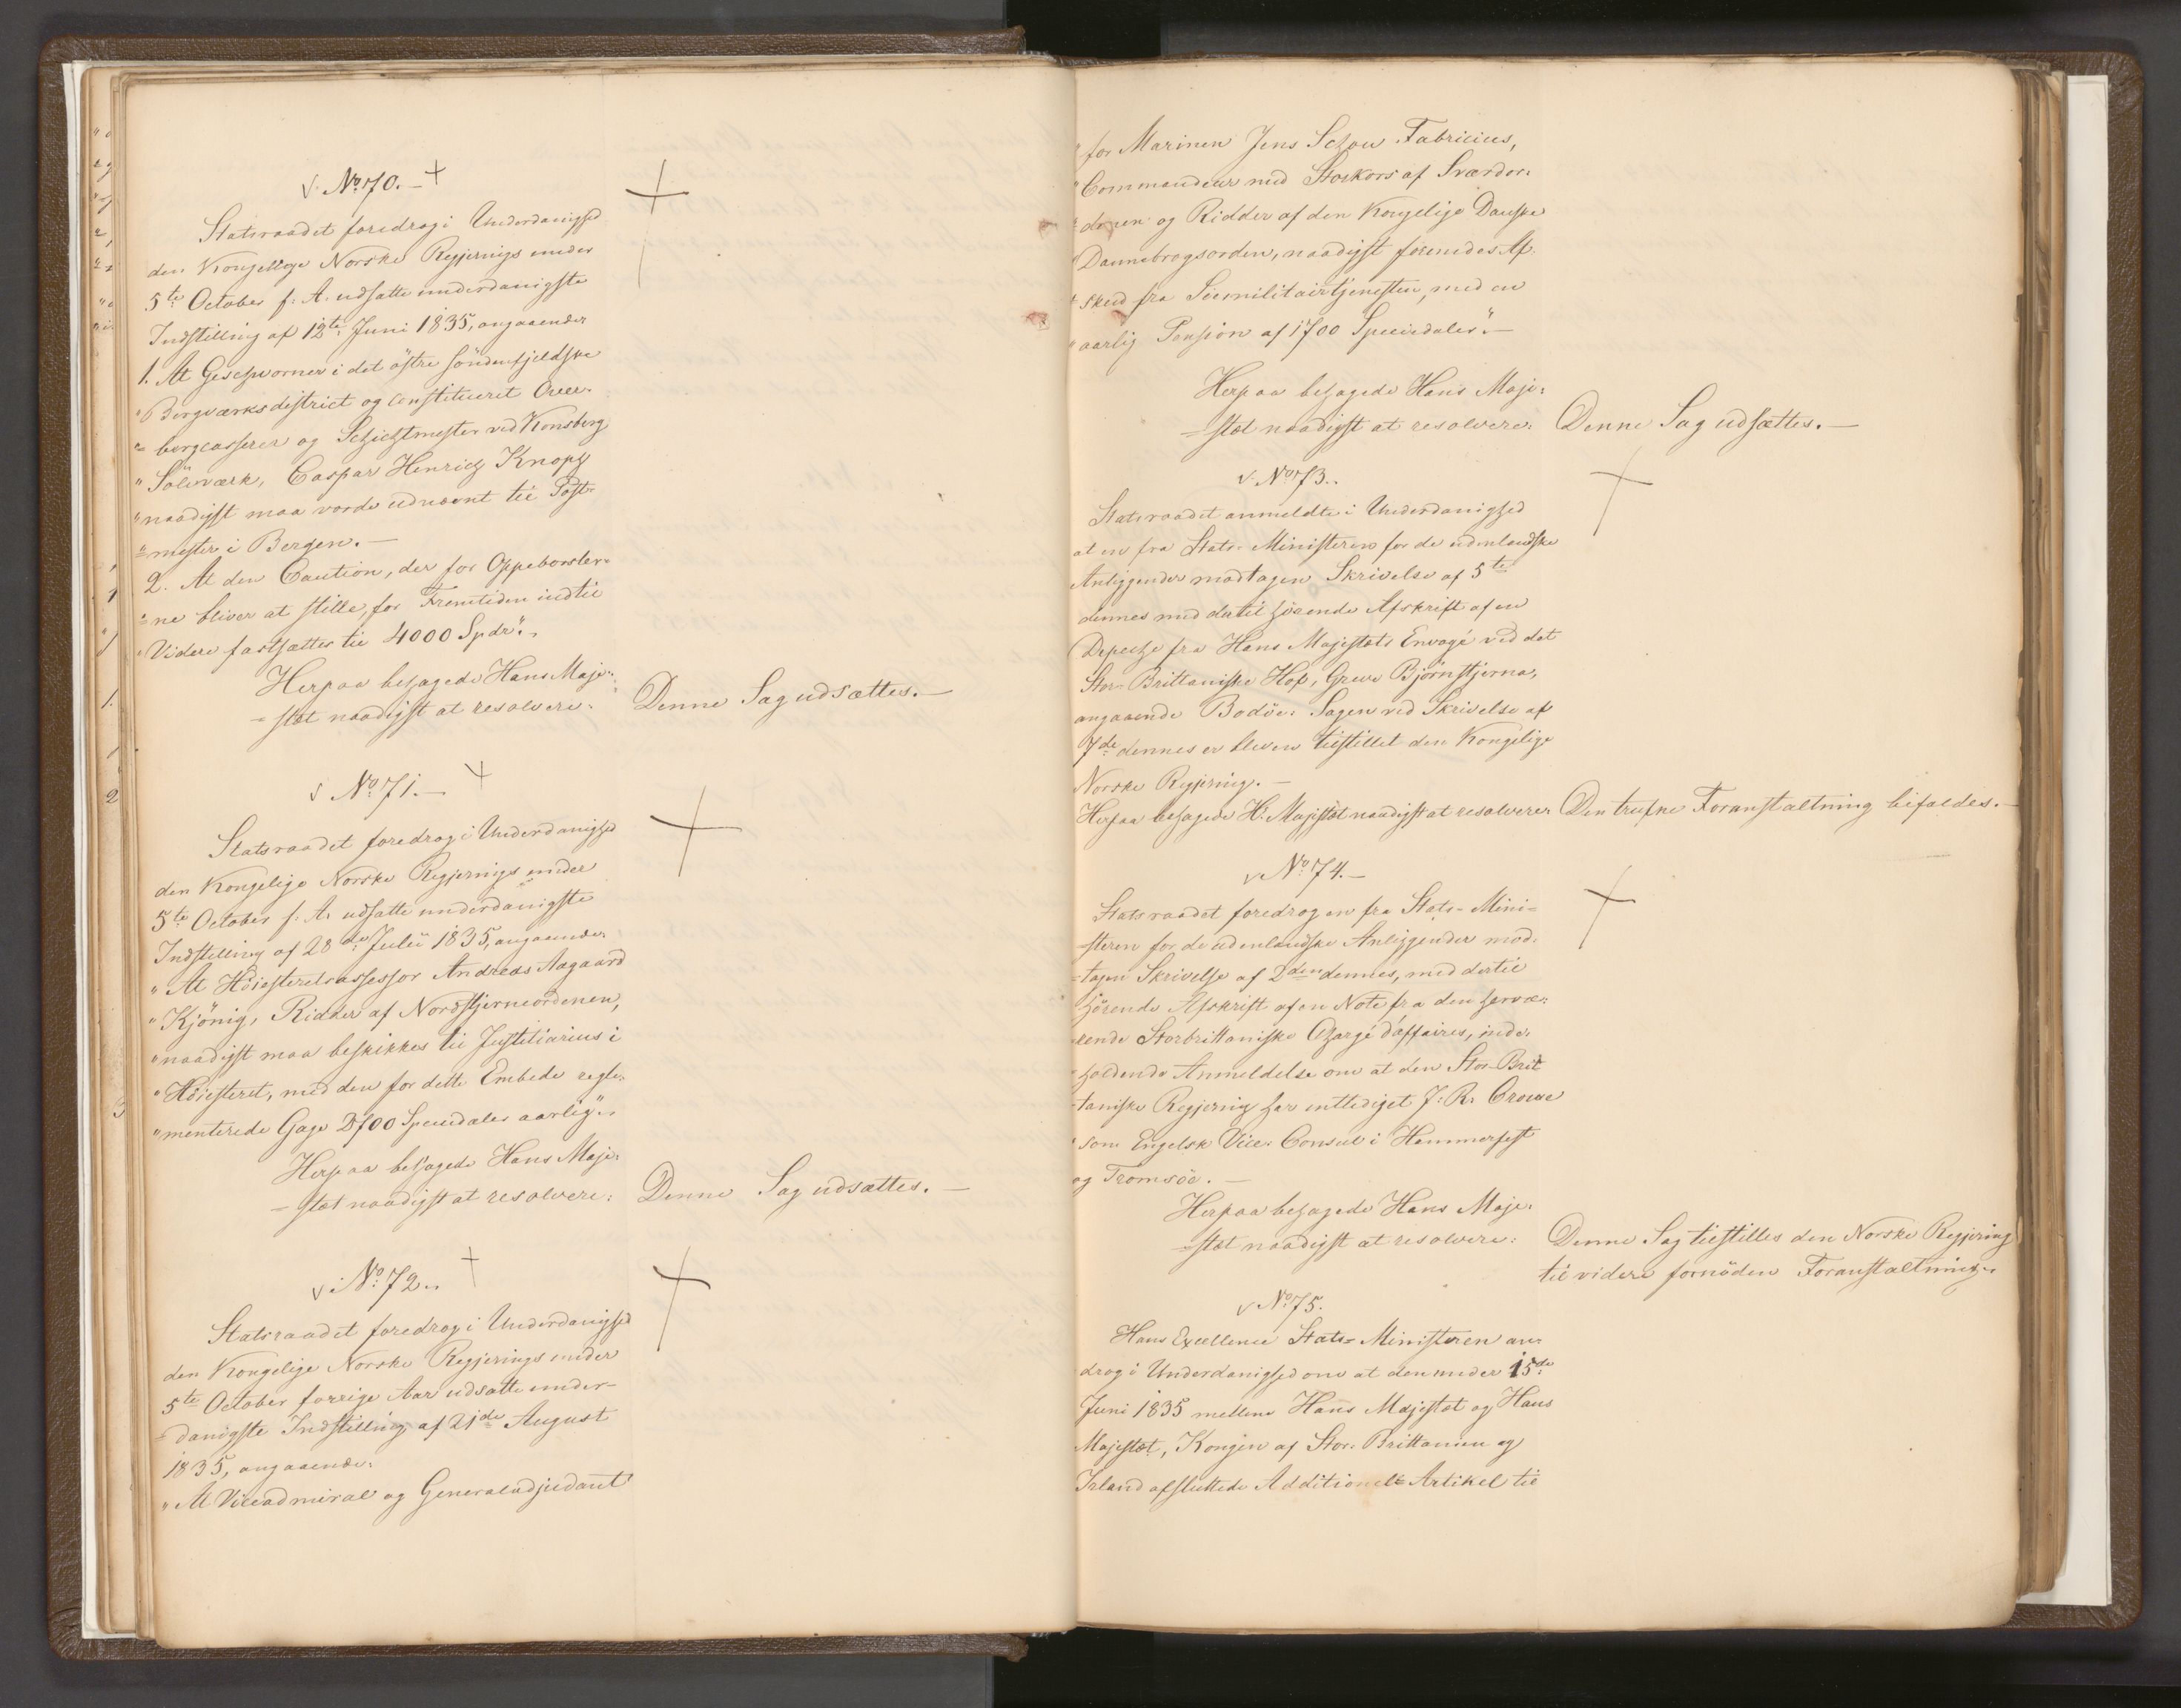 No. 70.
Statsraadet foredrog i Underdanighed
den Kongelige Norske Regjerings under
5te October f: A. udsatte underdanigste
Indstilling af 12te Juni 1835, angaaende:
1. At Geschworner i det östre söndenfjeldske
"Bergværksdistrict og constitueret Over-
"=bergcasserer og Schichtmester ved Konsberg
"Sölvværk, Caspar Henrich Knoph
"naadigst maa vorde udnævnt til Post-
"=mester i Bergen.—
2. At den Caution, der for Oppebørsler-
"=ne bliver at stille, for Fremtiden indtil
"Videre fastsættes til 4000 Spdr".
Herpaa behagede Hans Maje-
=stæt naadigst at resolvere:
Denne Sag udsættes.—
No. 71.—
Statsraadet foredrog i Underdanighed
den Kongelige Norske Regjerings under
5te October f: A. udsatte underdanigste
Indstilling af 28de Julii 1835, angaaende:
"At Höiesteretsassessor Andreas Aagaard
"Kjönig, Ridder af Nordstjerneordenen,
"naadigst maa beskikkes til Justitiarius i
"Höiesteret, med den for dette Embede regle-
"menterede Gage Speciedaler aarlig".
Herpaa behagede Hans Maje-
=stæt naadigst at resolvere:
Denne Sag udsættes.—
No. 72.
Statsraadet foredrog i Underdanighed
den Kongelige Norske Regjerings under
5te October forrige Aar udsatte under-
=danigste Indstilling af 21de August
1835, angaaende:
"At Viceadmiral og Generaladjudant
"for Marinen Jens Schou Fabricius,
"Commandeur med Storkors af Sværdor-
"denen og Ridder af den Kongelige Danske
"Dannebrogsorden, naadigst forundes Af-
"sked fra Söemilitairtjenesten, med en
"aarlig Pension af 1700 Speciedaler".—
Herpaa behagede Hans Maje-
=stæt naadigst at resolvere:
Denne Sag udsættes.—
No. 73.
Statsraadet anmeldte i Underdanighed
at en fra Stats-Ministeren for de udenlandske
Anliggender modtagen Skrivelse af 5te
dennes med dertil hörende Afskrift af en
Depeche fra Hans Majestæts Envoyé ved det
Stor-Brittaniske Hof, Greve Björnstjerna,
angaaende Bodöe-Sagen ved Skrivelse af
7de dennes er bleven tilstillet den Kongelige
Norske Regjering.—
Herpaa behagede H: Majestæt naadigst at resolvere:
Den trufne Foranstaltning bifaldes.—
No. 74.—
Statsraadet foredrog en fra Stats-Mini-
=steren for de udenlandske Anliggender mod-
=tagen Skrivelse af 2den dennes, med dertil
hörende Afskrift af en Note fra den hervæ-
rende Storbrittaniske Chargé d'affaires, inde-
holdende Anmeldelse om at den Stor-Brit-
taniske Regjering har entlediget J. R. Crowe
som Engelsk Vice-Consul i Hammerfest
og Tromsöe.—
Herpaa behagede Hans Maje-
=stæt naadigst at resolvere:
Denne Sag tilstilles den Norske Regjering
til videre fornöden Foranstaltning.
No. 75.
Hans Excellence Stats-Ministeren an-
drog i Underdanighed om at den under 15de
Juni 1835 mellem Hans Majestæt og Hans
Majestæt, Kongen af Stor-Brittanien og
Irland afsluttede Additionelt Artikel til